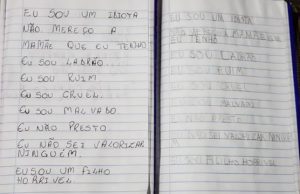 EU SOU UM IDIOTA
NÃO MEREÇO A
MAMÃE QUE EU TENHO
EU SOU LADRÃO...
EU SOU RUIM
EU SOU CRUEL.
EU SOU MALVADO
EU NÃO PRESTO
EU NÃO SEI VALORIZAR
NINGUÉM.
EU SOU UM FILHO
HORRIVEL.
EU SOU UM IDIOTA
EU TENHO
EU SOU LADRÃO
RUIM
CRUEL
MALVADO
NÃO PRESTO
SEI VALORIZAR NINGUEM
SOU FILHO HORRIVEL